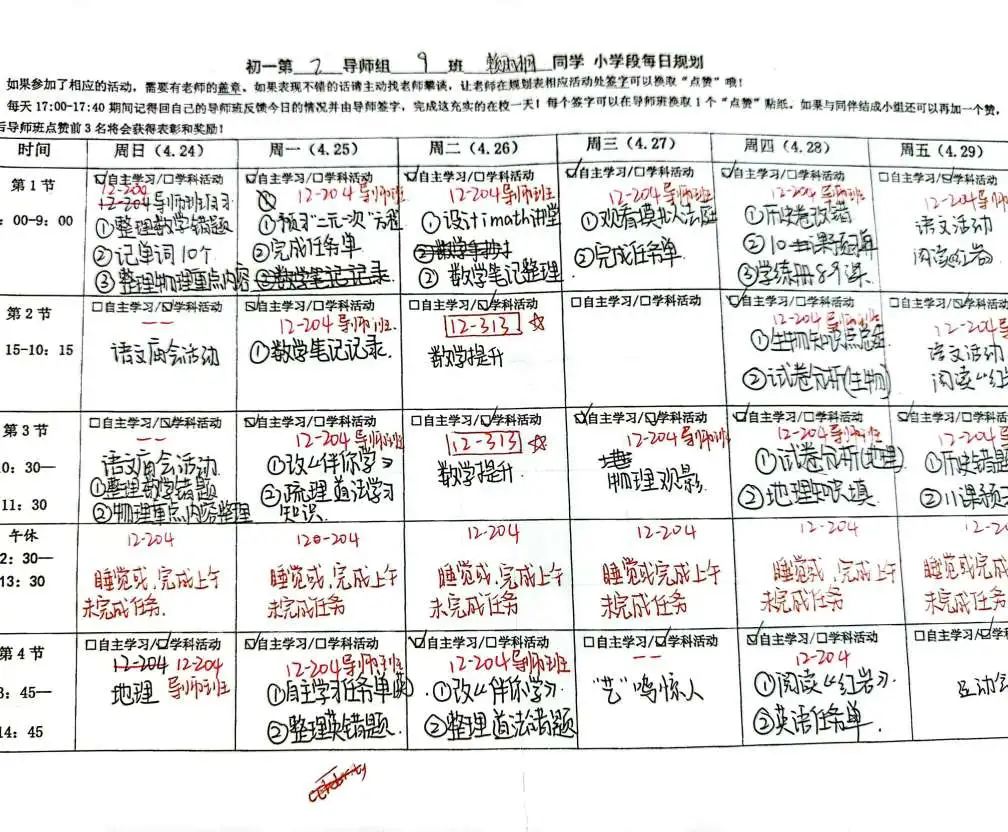 初一第 2 导师组 9 班 同学 小学段每日规划
如果参加了相应的活动，需要有老师的盖章。如果表现不错的话请主动找老师攀谈，让老师在规划表相应活动处签字可以换取“点赞”哦！
每天 17:00-17:40 期间记得回自己的导师班反馈今日的情况并由导师签字，完成这充实的在校一天！每个签字可以在导师班换取 1 个“点赞”贴纸。如果与同伴结成小组还可以再加一个赞，
后导师班点赞前 3 名将会获得表彰和奖励！
时间 周日（4.24） 周一（4.25） 周二（4.26） 周三（4.27） 周四（4.28） 周五（4.29）
第 1 节
:00-9：00
☑自主学习/☐学科活动
12-200
12-204 导师班
①整理数学错题
②记单词10个
③整理物理重点内容
☑自主学习/☐学科活动
12-204导师班
①预习“二元一次”方程
②完成任务单
③数学笔记记录
☑自主学习/☐学科活动
12-204导师班
①设计imath讲堂
②数学手抄
② 数学笔记整理
☑自主学习/☐学科活动
12-204导师班
①观看模拟法庭
②完成任务单
☑自主学习/☐学科活动
12-204导师班
①历史卷改错
③学练册8.9课
☐自主学习/☑学科活动
12-204导师
语文活动
阅读红岩
第 2 节
15-10：15
☐自主学习/☑学科活动
——
语文庙会活动
☑自主学习/☐学科活动
12-204导师班
①数学笔记记录.
☐自主学习/☑学科活动
12-313 ☆
数学提升
☐自主学习/☐学科活动
☑自主学习/☐学科活动
12-204导师班
①生物知识点总结
②试卷分析(生物)
☐自主学习/☑学科活动
12-204导
语文活动
阅读《红
第 3 节
0：30—
11：30
☐自主学习/☑学科活动
——
语文庙会活动
①整理数学错题
②物理重点内容整理
☑自主学习/☐学科活动
12-204导师班
①改《伴你学》
②梳理道法学习
知识.
☐自主学习/☑学科活动
12-313 ☆
数学提升.
☑自主学习/☑学科活动
12-204导师班
物理观影.
☑自主学习/☐学科活动
12-204导师班
①试卷分析(地理)
②地理知识填.
☑自主学习/☐学科活动
12-204导
①历史错题
②11课预
午休
2：30—
13：30
12-204
睡觉或.完成上午
未完成任务.
120-204
睡觉或.完成上午
未完成任务
12-204
睡觉或.完成上午
未完成任务
12-204
睡觉或.完成上午
未完成任务
12-204
睡觉或.完成上午
未完成任务
12-20
睡觉或.完
未完成任务
第 4 节
3：45—
14：45
☐自主学习/☑学科活动
12-204 12-204
地理 导师班
☑自主学习/☐学科活动
12-204导师班
①自主学习任务单英
②整理英错题.
☑自主学习/☐学科活动
12-204导师班
①改《伴你学》.
②整理道法错题
☐自主学习/☑学科活动
——
“艺”鸣惊人
☑自主学习/☐学科活动
12-204
①阅读《红岩》.
②英语任务单.
☐自主学习/☑学科活
互动